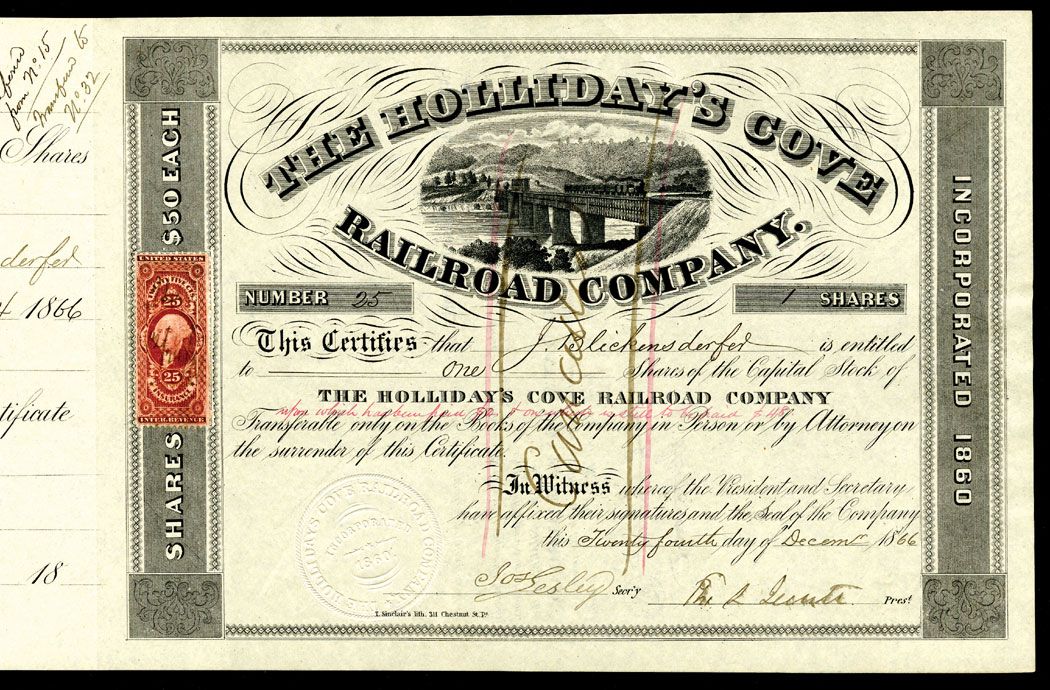 from Nº 15
Transfer to
Nº 32
Shares
derfer
1866
tificate
18
SHARES $50 EACH
UNITED STATES
TWENTY FIVE CTS.
25
25
INSURANCE
INTER. REVENUE
THE HOLLIDAY'S COVE
RAILROAD COMPANY.
NUMBER 25
1 SHARES
This Certifies that J. Blickensderfer is entitled
to one Shares of the Capital Stock of
THE HOLLIDAY'S COVE RAILROAD COMPANY
upon which has been paid & on which is still to be paid $48
Transferable only on the Books of the Company in Person or by Attorney on
the surrender of this Certificate.
In Witness whereof the President and Secretary
have affixed their signatures and the Seal of the Company
this Twenty fourth day of Decemr 1866
Jos Lesley Sec'y
Pres't
Cancelled
HOLLIDAYS COVE RAILROAD COMPANY
INCORPORATED
1860
T. Sinclair's lith. 311 Chestnut St. Pa.
INCORPORATED 1860